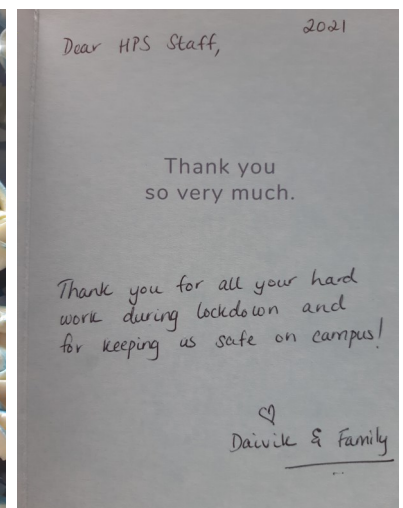 2021
Dear HPS Staff,
Thank you
so very much.
Thank you for all your hard
work during lockdown and
for keeping us safe on campus!
♡
Daivik & Family